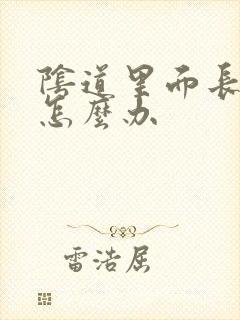 陰道里而長
怎麼办
雷浩屈